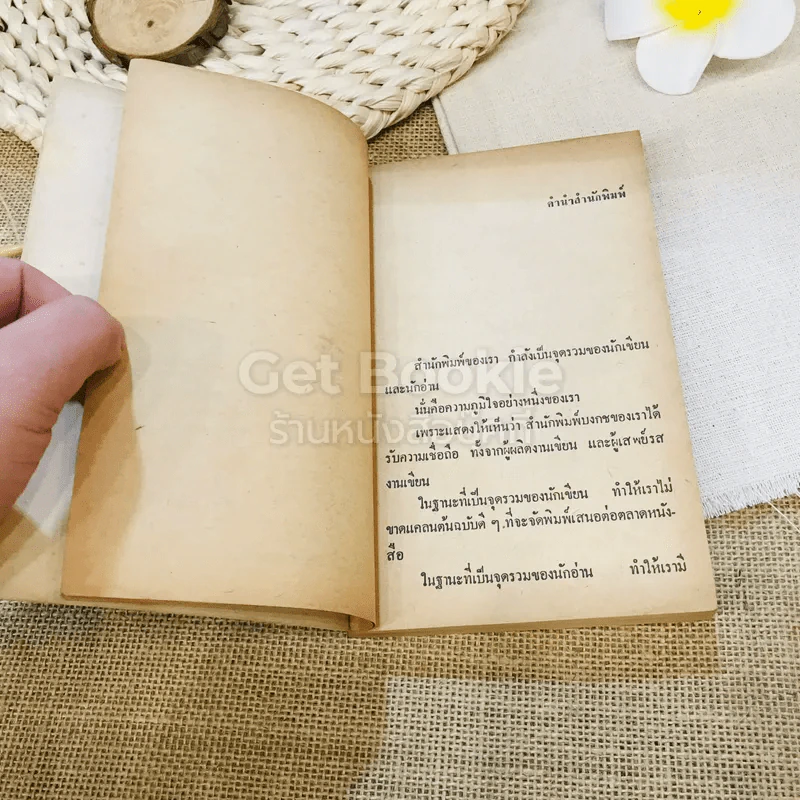 คำนำสำนักพิมพ์
สำนักพิมพ์ของเรา กำลังเป็นจุดรวมของนักเขียน
และนักอ่าน
นั่นคือความภูมิใจอย่างหนึ่งของเรา
เพราะแสดงให้เห็นว่า สำนักพิมพ์บงกชของเราได้
รับความเชื่อถือ ทั้งจากผู้ผลิตงานเขียน และผู้เสพย์รส
งานเขียน
ในฐานะที่เป็นจุดรวมของนักเขียน ทำให้เราไม่
ขาดแคลนต้นฉบับดี ๆ ที่จะจัดพิมพ์เสนอต่อตลาดหนัง-
สือ
ในฐานะที่เป็นจุดรวมของนักอ่าน ทำให้เรามี
Get Bookie
ร้านหนังสือ